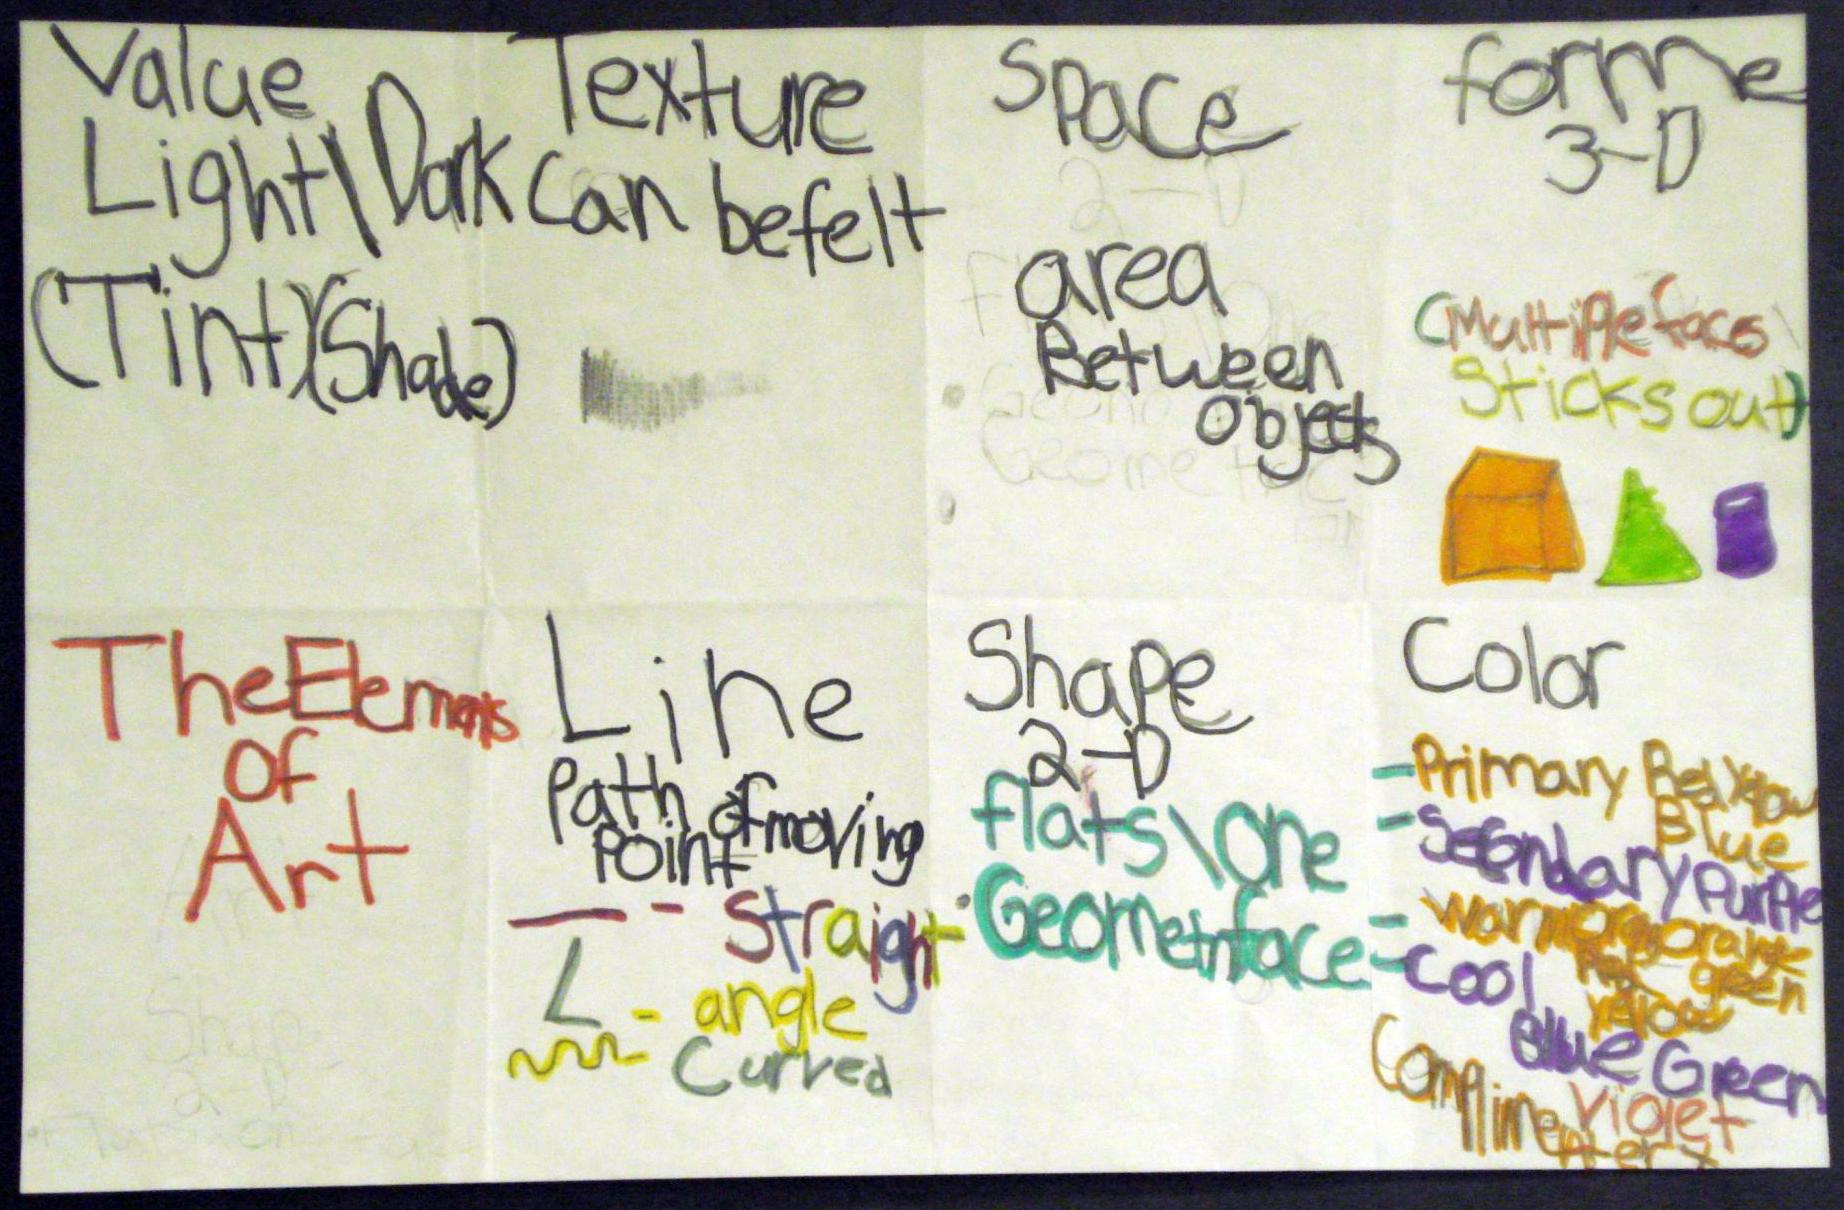 Value
Light\Dark
(Tint)(Shade)
Texture
Can be felt
Space
area
Between
Objects
forme
3-D
(Multiple faces
Sticks out)
The Elements
Of
Art
Line
Path of moving
Point
- Straight
- angle
- Curved
Shape
2-D
flats\One
face
Color
- Primary Red Yellow
Blue
- Secondary Purple
green
orange
- warm
Red
Yellow
- Cool
Blue Green
Violet